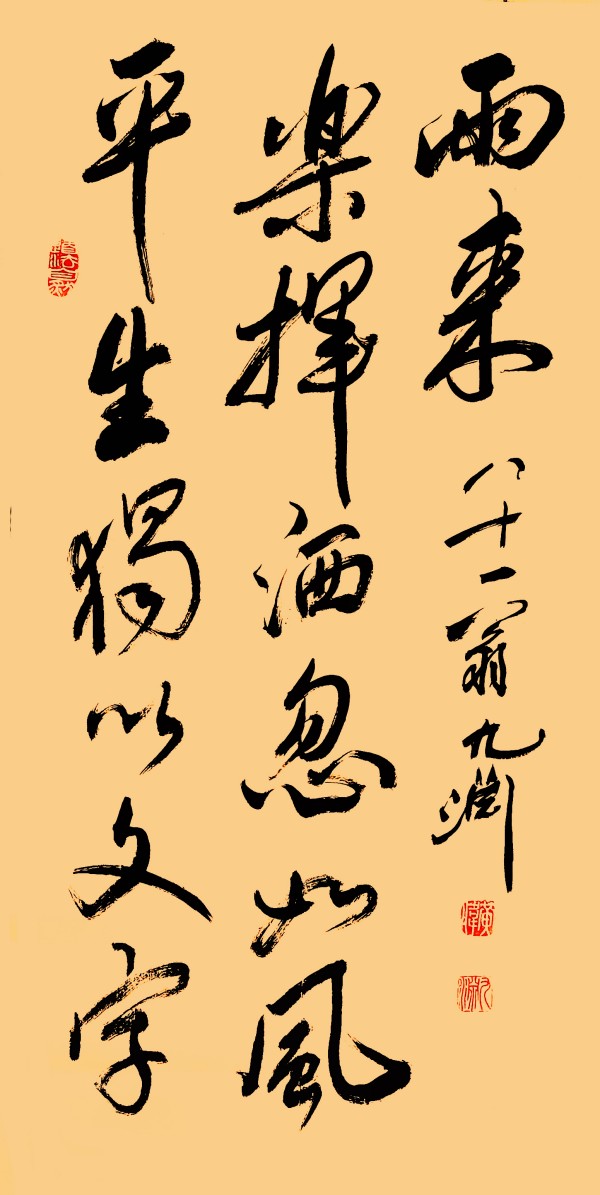 平生獨以文字
楽揮洒忽如風
雨来 八十一翁九淵